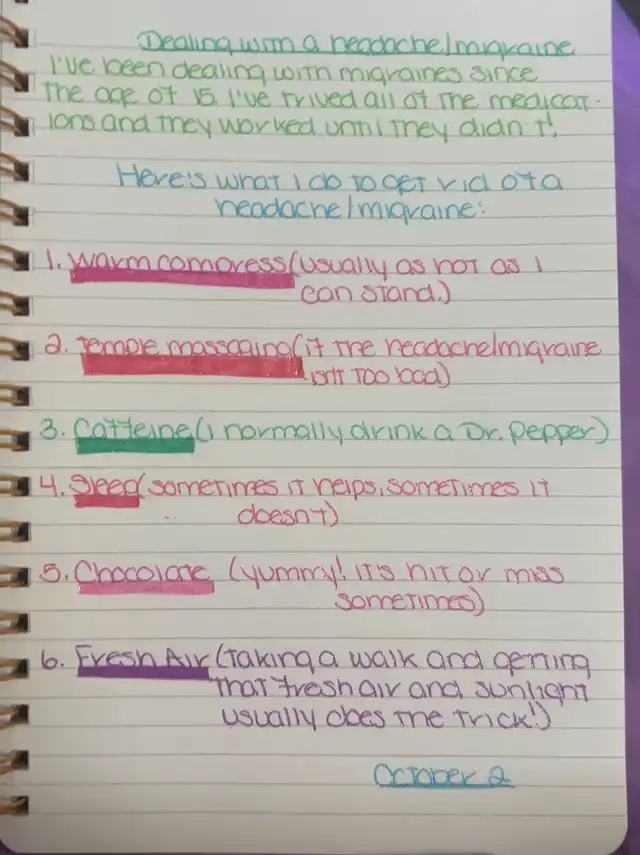 Dealing with a headache/migraine
I've been dealing with migraines since
the age of 15. I've tried all of the medicat-
ions and they worked until they didn't!
Here's what I do to get rid of a
headache/migraine:
1. Warm compress (usually as hot as I
can stand.)
2. Temple massaging (if the headache/migraine
isn't too bad)
3. Caffeine (I normally drink a Dr. Pepper)
4. Sleep (sometimes it helps, sometimes it
doesn't)
5. Chocolate (yummy! it's hit or miss
sometimes)
6. Fresh Air (taking a walk and getting
that fresh air and sunlight
usually does the trick!)
October 2